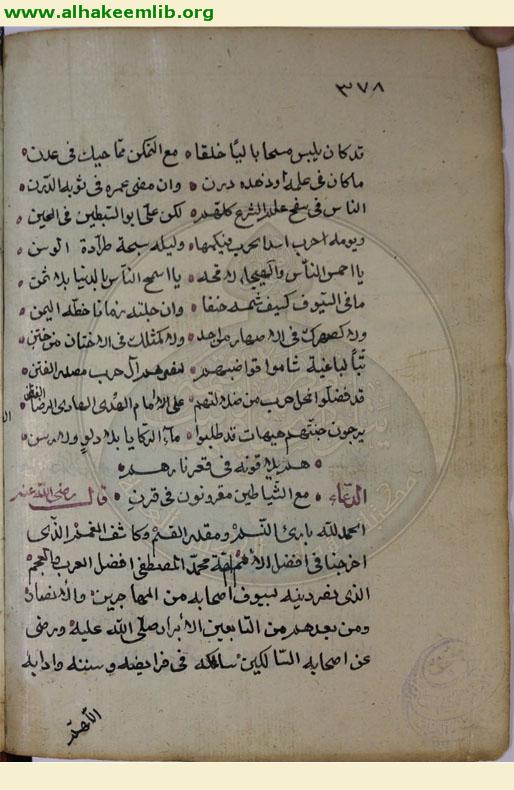 www.alhakeemlib.org
٣٧٨
قد كان يلبس مسحا باليا خلقا مع التمكن مما حيك في عدن
ما كان في علمه او زهده درن وان مضى عمره في ثوبه الدرن
الناس في سفح علم الشرع كلهم لكن علي ابو السبطين في
ويومه حرب اسد الحرب وليله سبحة طرادة الوسن
يا احمس الناس والهيجا يا اسمح الناس بالدنيا بلا ثمن
ما في السيوف كسيف شمته خنفا وان حلته زمانا خطه اليمن
ولا كصهرك في الاصهار من احد ولا كمثلك في الاختان من ختن
تبا لباغية شاموا قواضبهم لنصرهم آل حرب مصدر الفتن
قد فضلوا نجل حرب من ضلالتهم على الامام الهدى الهادي الرضا الفطن
يرجون جنتهم هيهات قد طلبوا ماء الركايا بلا دلو ولا رسن
هم يلاقونه في قعر نارهم
مع الشياطين مقرونون في قرن
الدعاء قال رضي الله عنه
الحمد لله بارئ النسم ومقدر القسم وكاشف الغمم الذي
اخرجنا في افضل الامم امة محمد المصطفى افضل العرب والعجم
الذي نصر دينه بسيوف اصحابه من المهاجرين والانصار
ومن بعدهم من التابعين الابرار صلى الله عليه ورضي
عن اصحابه السالكين سلكه في فرايضه وسننه وادابه
اللهم